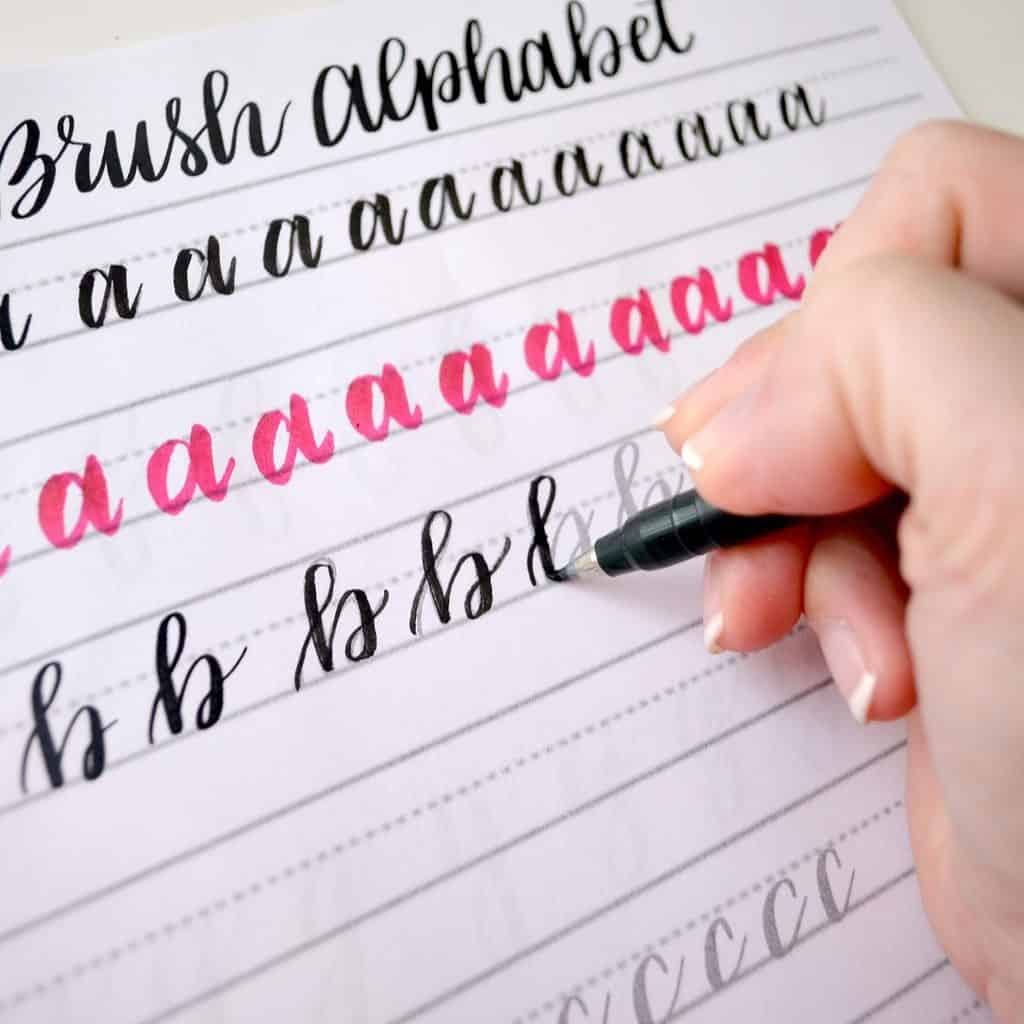 Brush Alphabet
a a a a a a a a a a a a
a a a a a a a a a a
b b b b b b
c c c c c